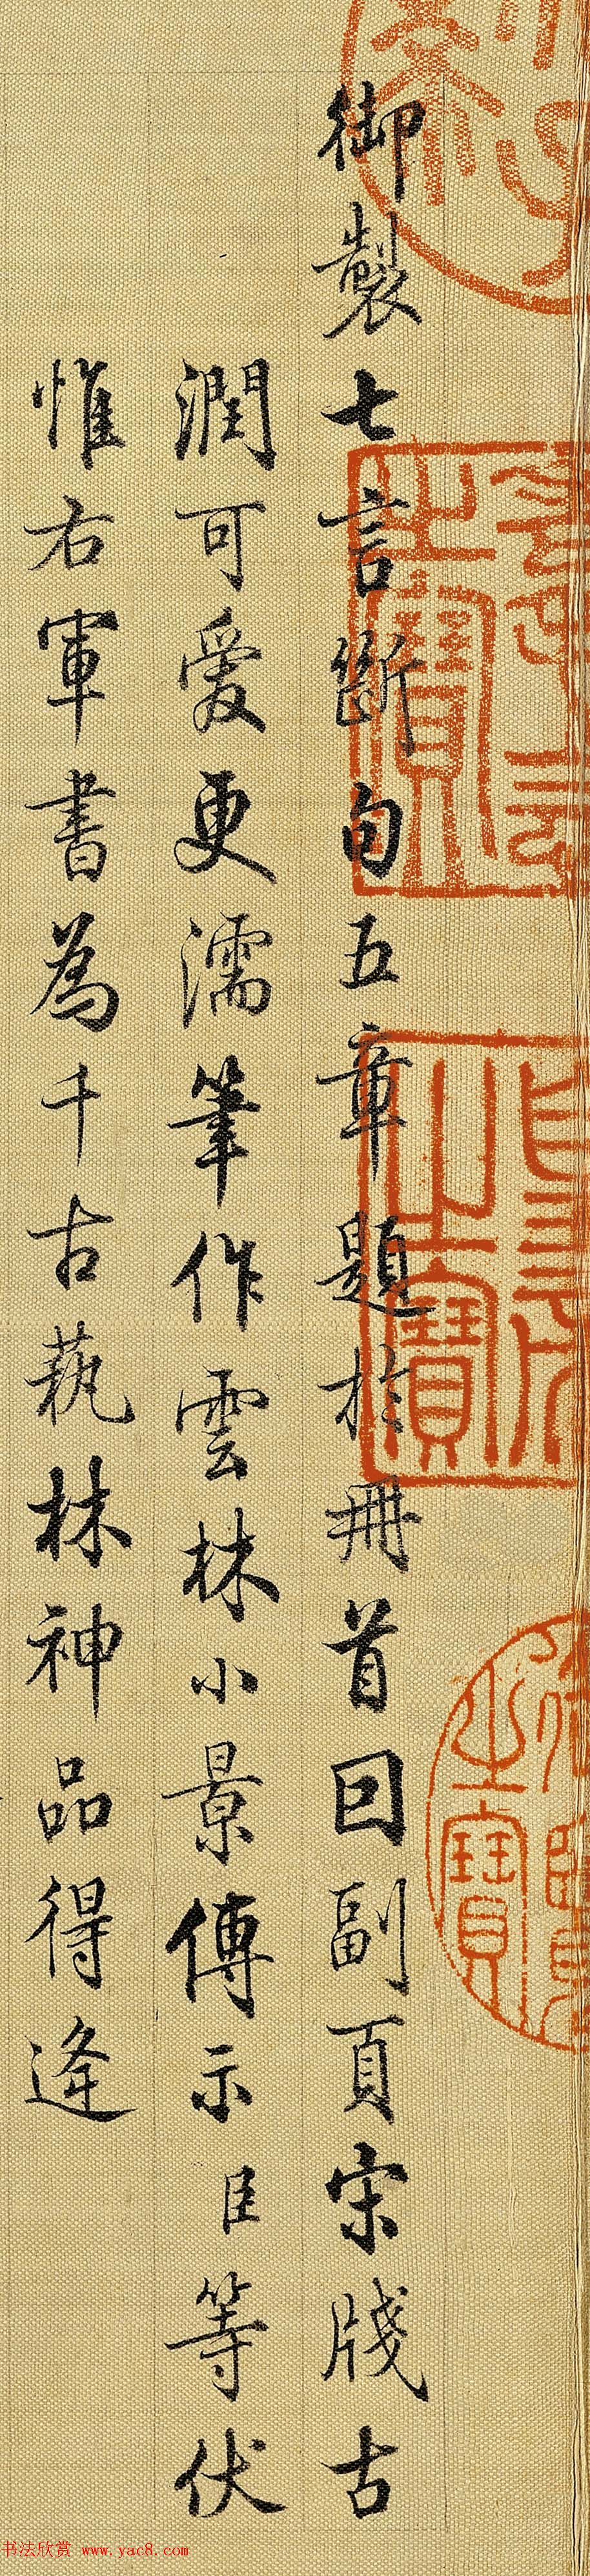 御製七言斷句五章題於冊首回副頁宋牋古
潤可愛更濡筆作雲林小景傳示臣等伏
惟右軍書為千古蓺林神品得逢
之寶
之寶
之寶
书法欣赏 www.yac8.com